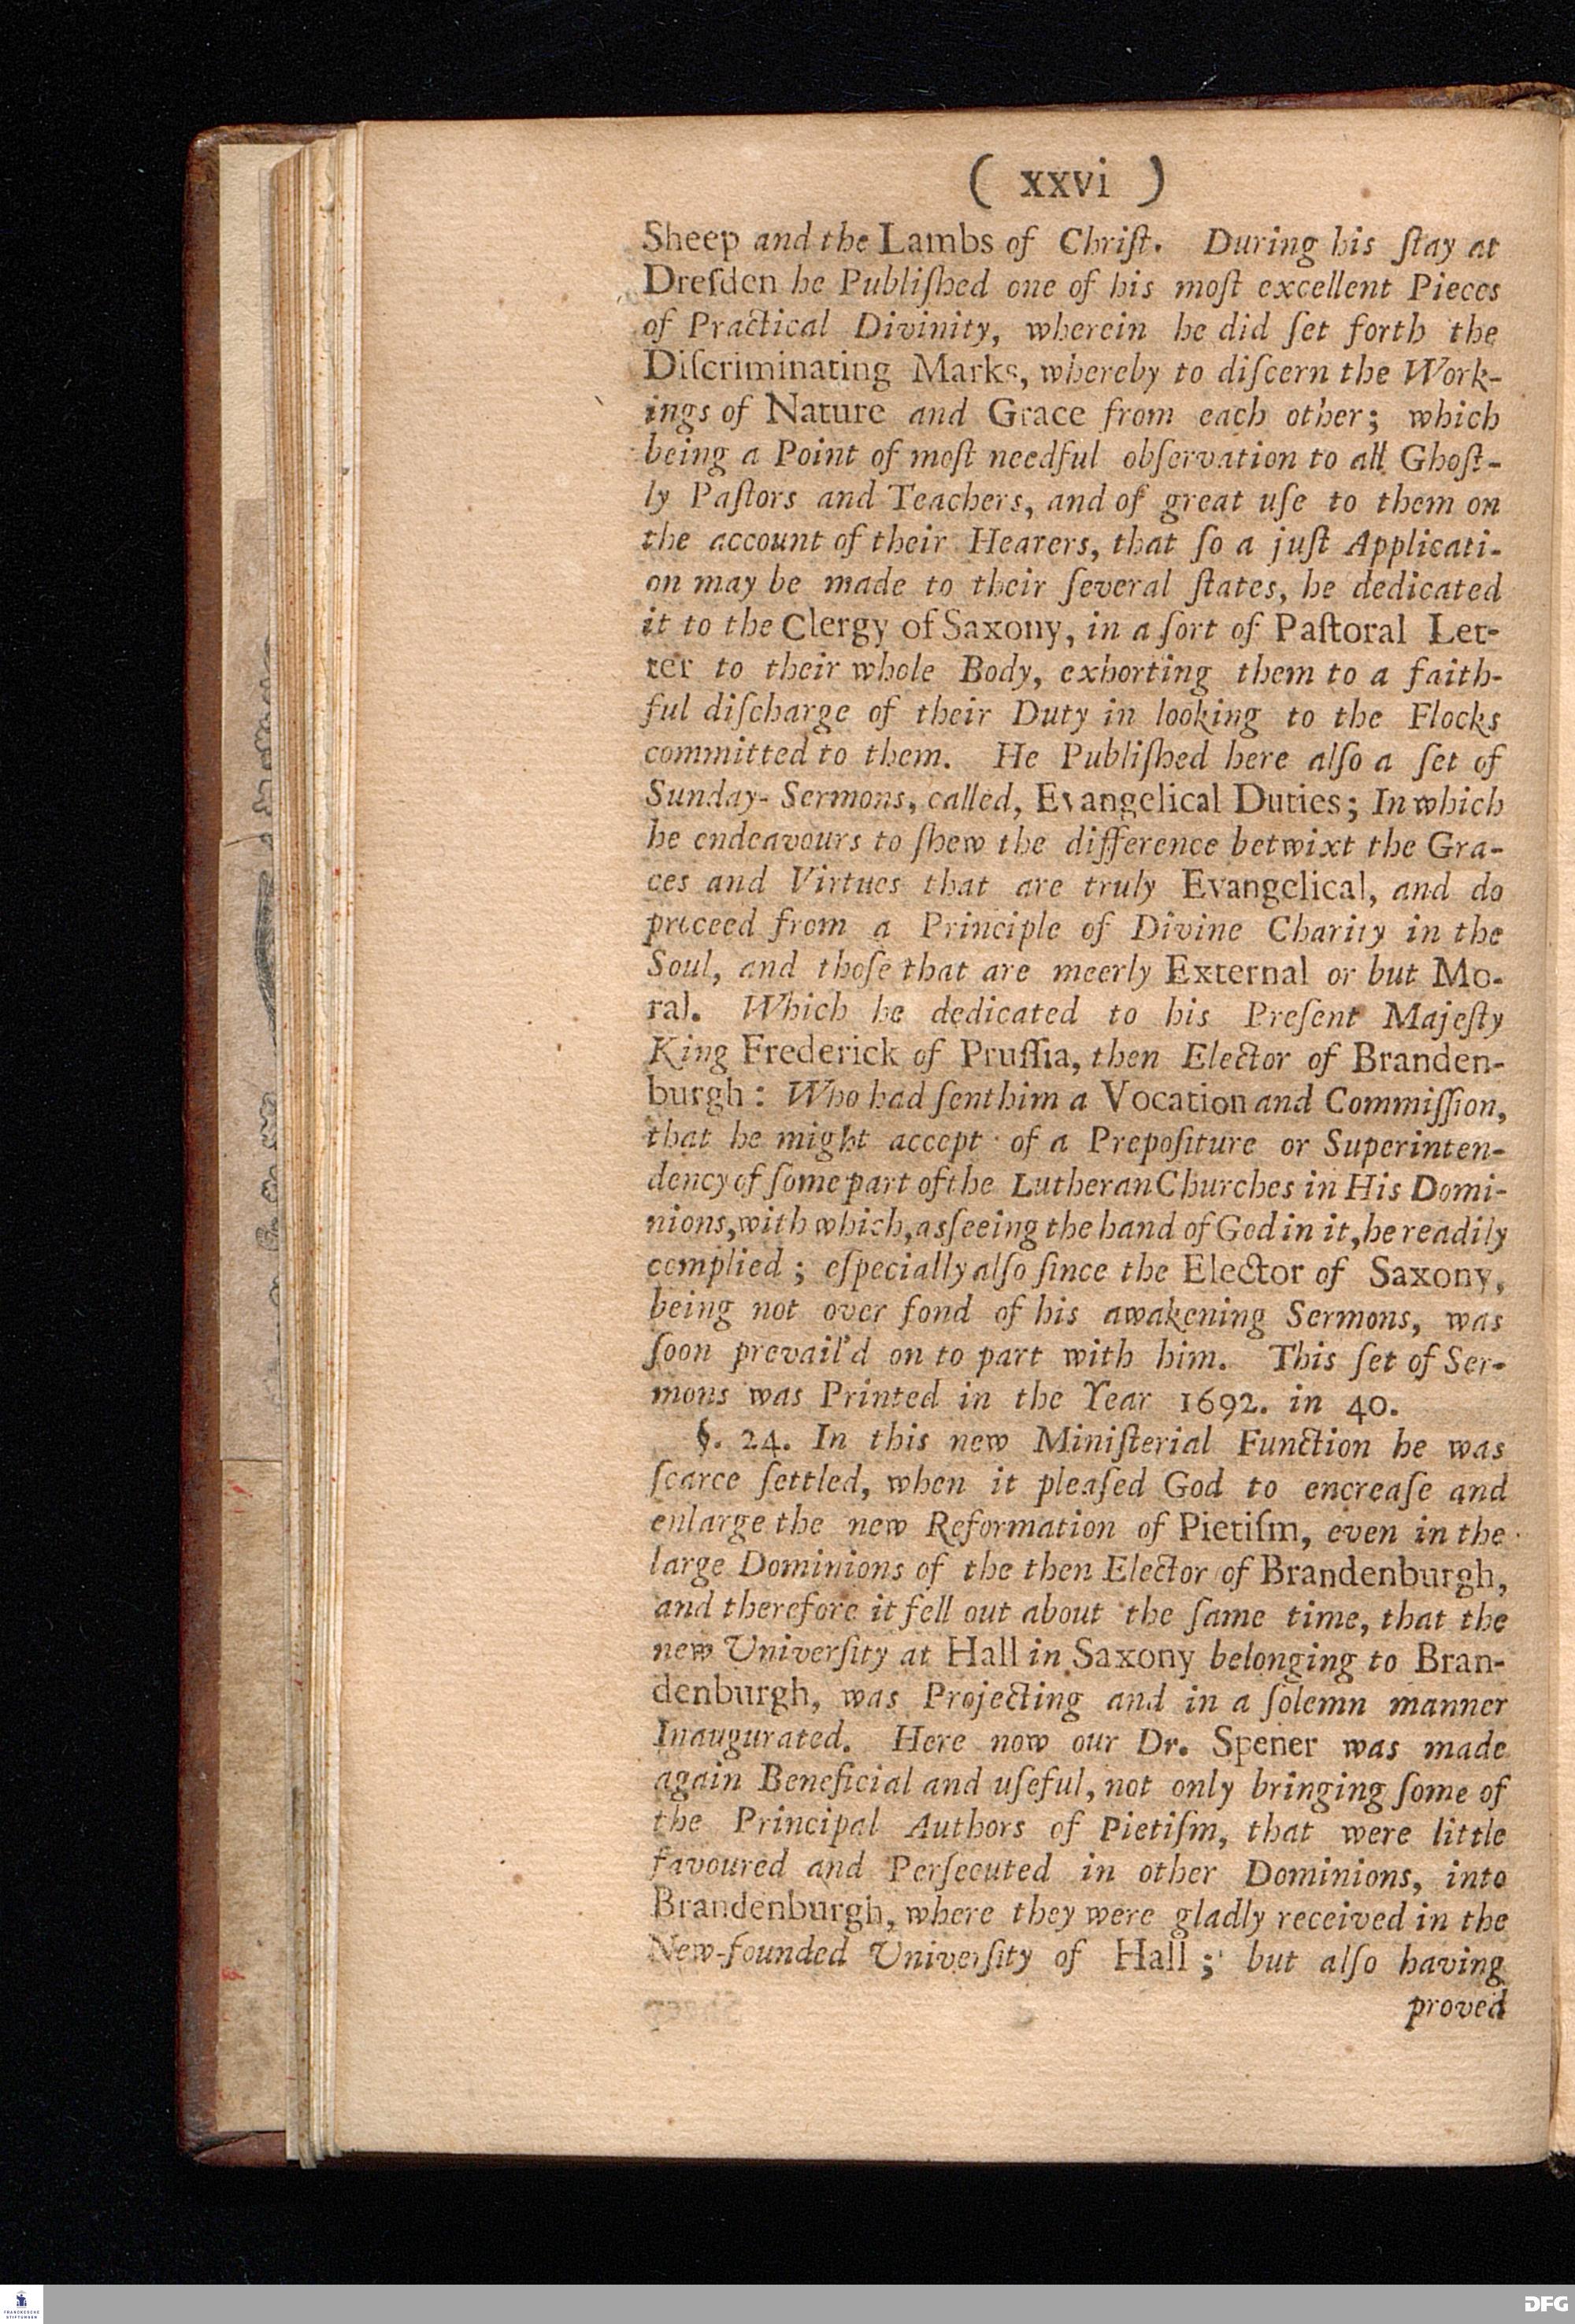 ( xxvi )
Sheep and the Lambs of Chriſt. During his ſtay at
Dreſden he Publiſhed one of his moſt excellent Pieces
of Practical Divinity, wherein he did ſet forth the
Diſcriminating Marks, whereby to diſcern the Work-
ings of Nature and Grace from each other; which
being a Point of moſt needful obſervation to all Ghoſt-
ly Paſtors and Teachers, and of great uſe to them on
the account of their Hearers, that ſo a juſt Applicati-
on may be made to their ſeveral ſtates, he dedicated
it to the Clergy of Saxony, in a ſort of Paſtoral Let-
ter to their whole Body, exhorting them to a faith-
ful diſcharge of their Duty in looking to the Flocks
committed to them. He Publiſhed here alſo a ſet of
Sunday-Sermons, called, Evangelical Duties; In which
he endeavours to ſhew the difference betwixt the Gra-
ces and Virtues that are truly Evangelical, and do
proceed from a Principle of Divine Charity in the
Soul, and thoſe that are meerly External or but Mo-
ral. Which he dedicated to his Preſent Majeſty
King Frederick of Pruſſia, then Elector of Branden-
burgh: Who had ſent him a Vocation and Commiſſion,
that he might accept of a Prepoſiture or Superinten-
dency of ſome part of the Lutheran Churches in His Domi-
nions, with which, as ſeeing the hand of God in it, he readily
complied; eſpecially alſo ſince the Elector of Saxony,
being not over fond of his awakening Sermons, was
ſoon prevail'd on to part with him. This ſet of Ser-
mons was Printed in the Year 1692. in 40.
§. 24. In this new Miniſterial Function he was
ſcarce ſettled, when it pleaſed God to encreaſe and
enlarge the new Reformation of Pietiſm, even in the
large Dominions of the then Elector of Brandenburgh,
and therefore it fell out about the ſame time, that the
new Univerſity at Hall in Saxony belonging to Bran-
denburgh, was Projecting and in a ſolemn manner
Inaugurated. Here now our Dr. Spener was made
again Beneficial and uſeful, not only bringing ſome of
the Principal Authors of Pietiſm, that were little
favoured and Perſecuted in other Dominions, into
Brandenburgh, where they were gladly received in the
New-founded Univerſity of Hall; but alſo having
proved
FRANCKESCHE
STIFTUNGEN
DFG